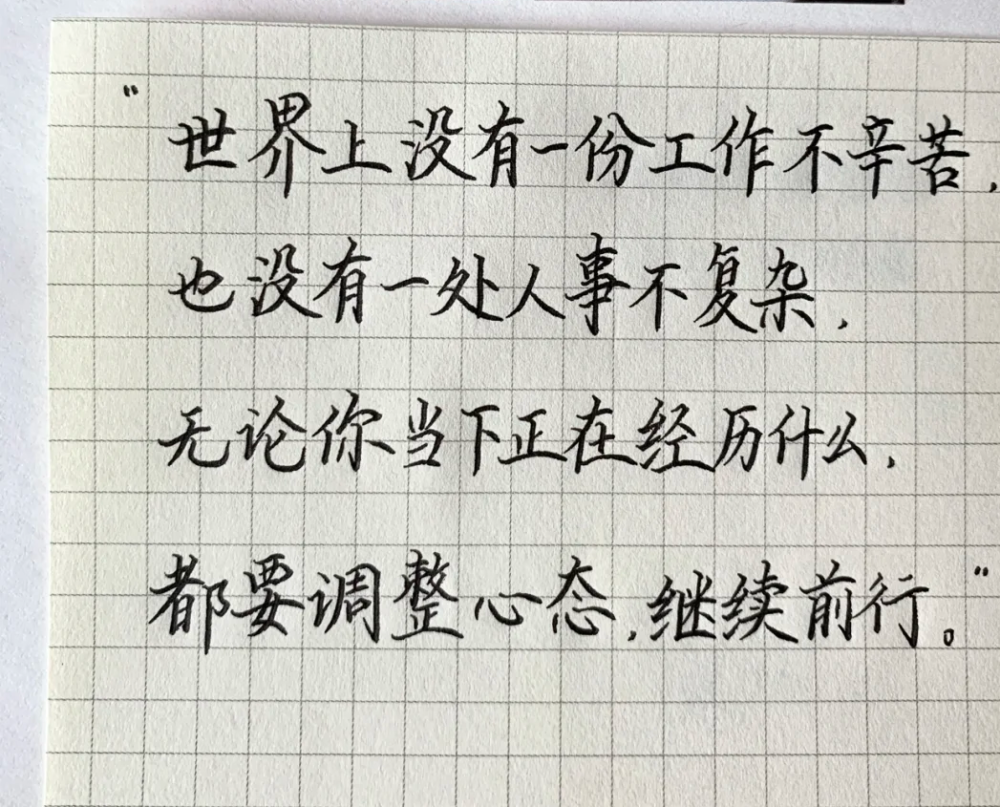 “世界上没有一份工作不辛苦，
也没有一处人事不复杂，
无论你当下正在经历什么，
都要调整心态，继续前行。”